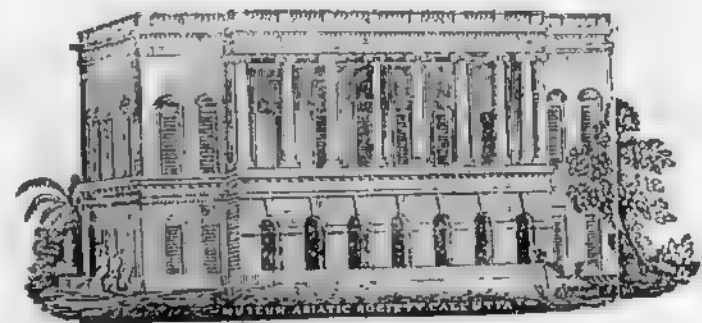 MUSEUM ASIATIC SOCIETY, CALCUTTA